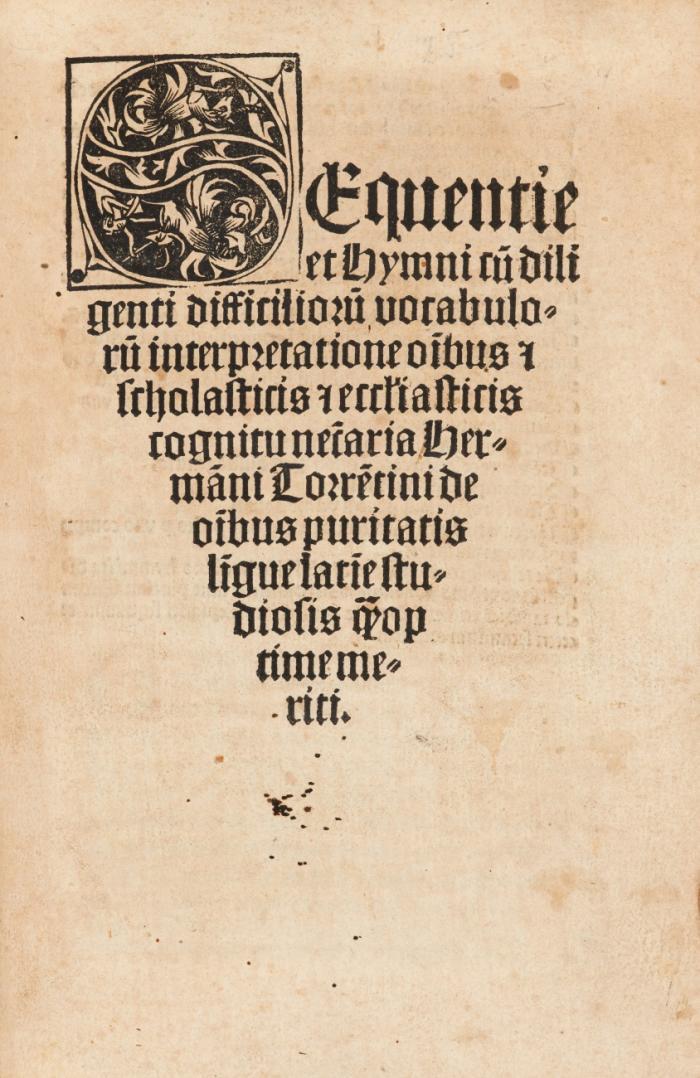 SEquentie
et Hymni cū dili
genti difficilioꝛū vocabulo⸗
rū interpꝛetatione oībus ⁊
ſcholaſticis ⁊ eccłiaſticis
cognitu nec̄aria Her⸗
māni Toꝛrētini de
oībus puritatis
līgue latīe ſtu⸗
dioſis q̄ꝫop
time me⸗
riti.